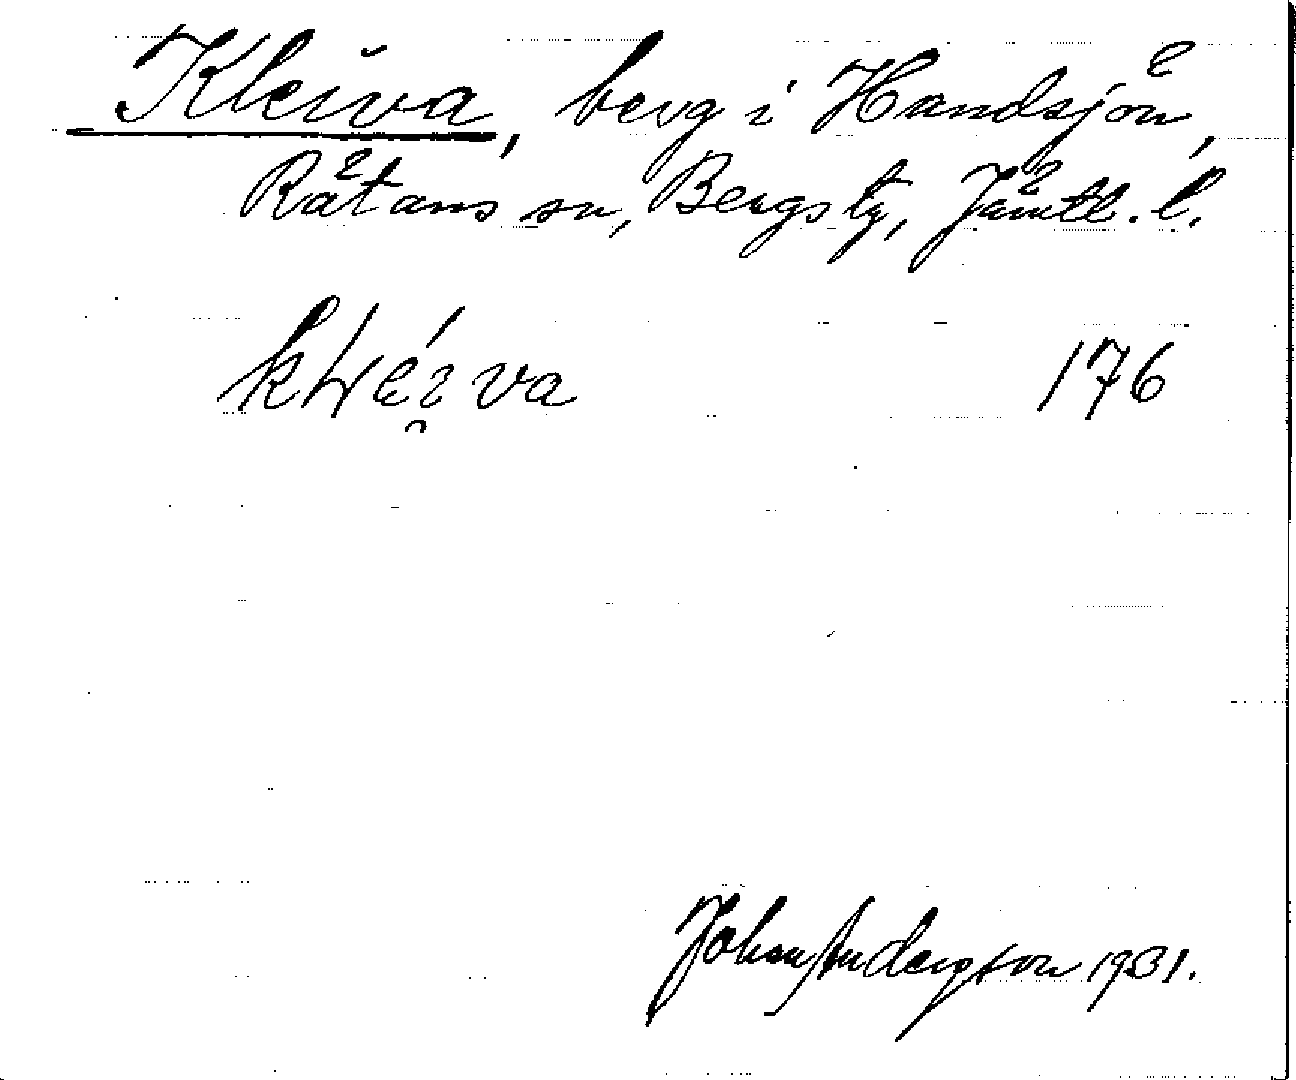 Kleiva, berg i Handsjön,
Rätans sn, Bergs tg, Jämtl. l.
176
Johan Anderson 1931.